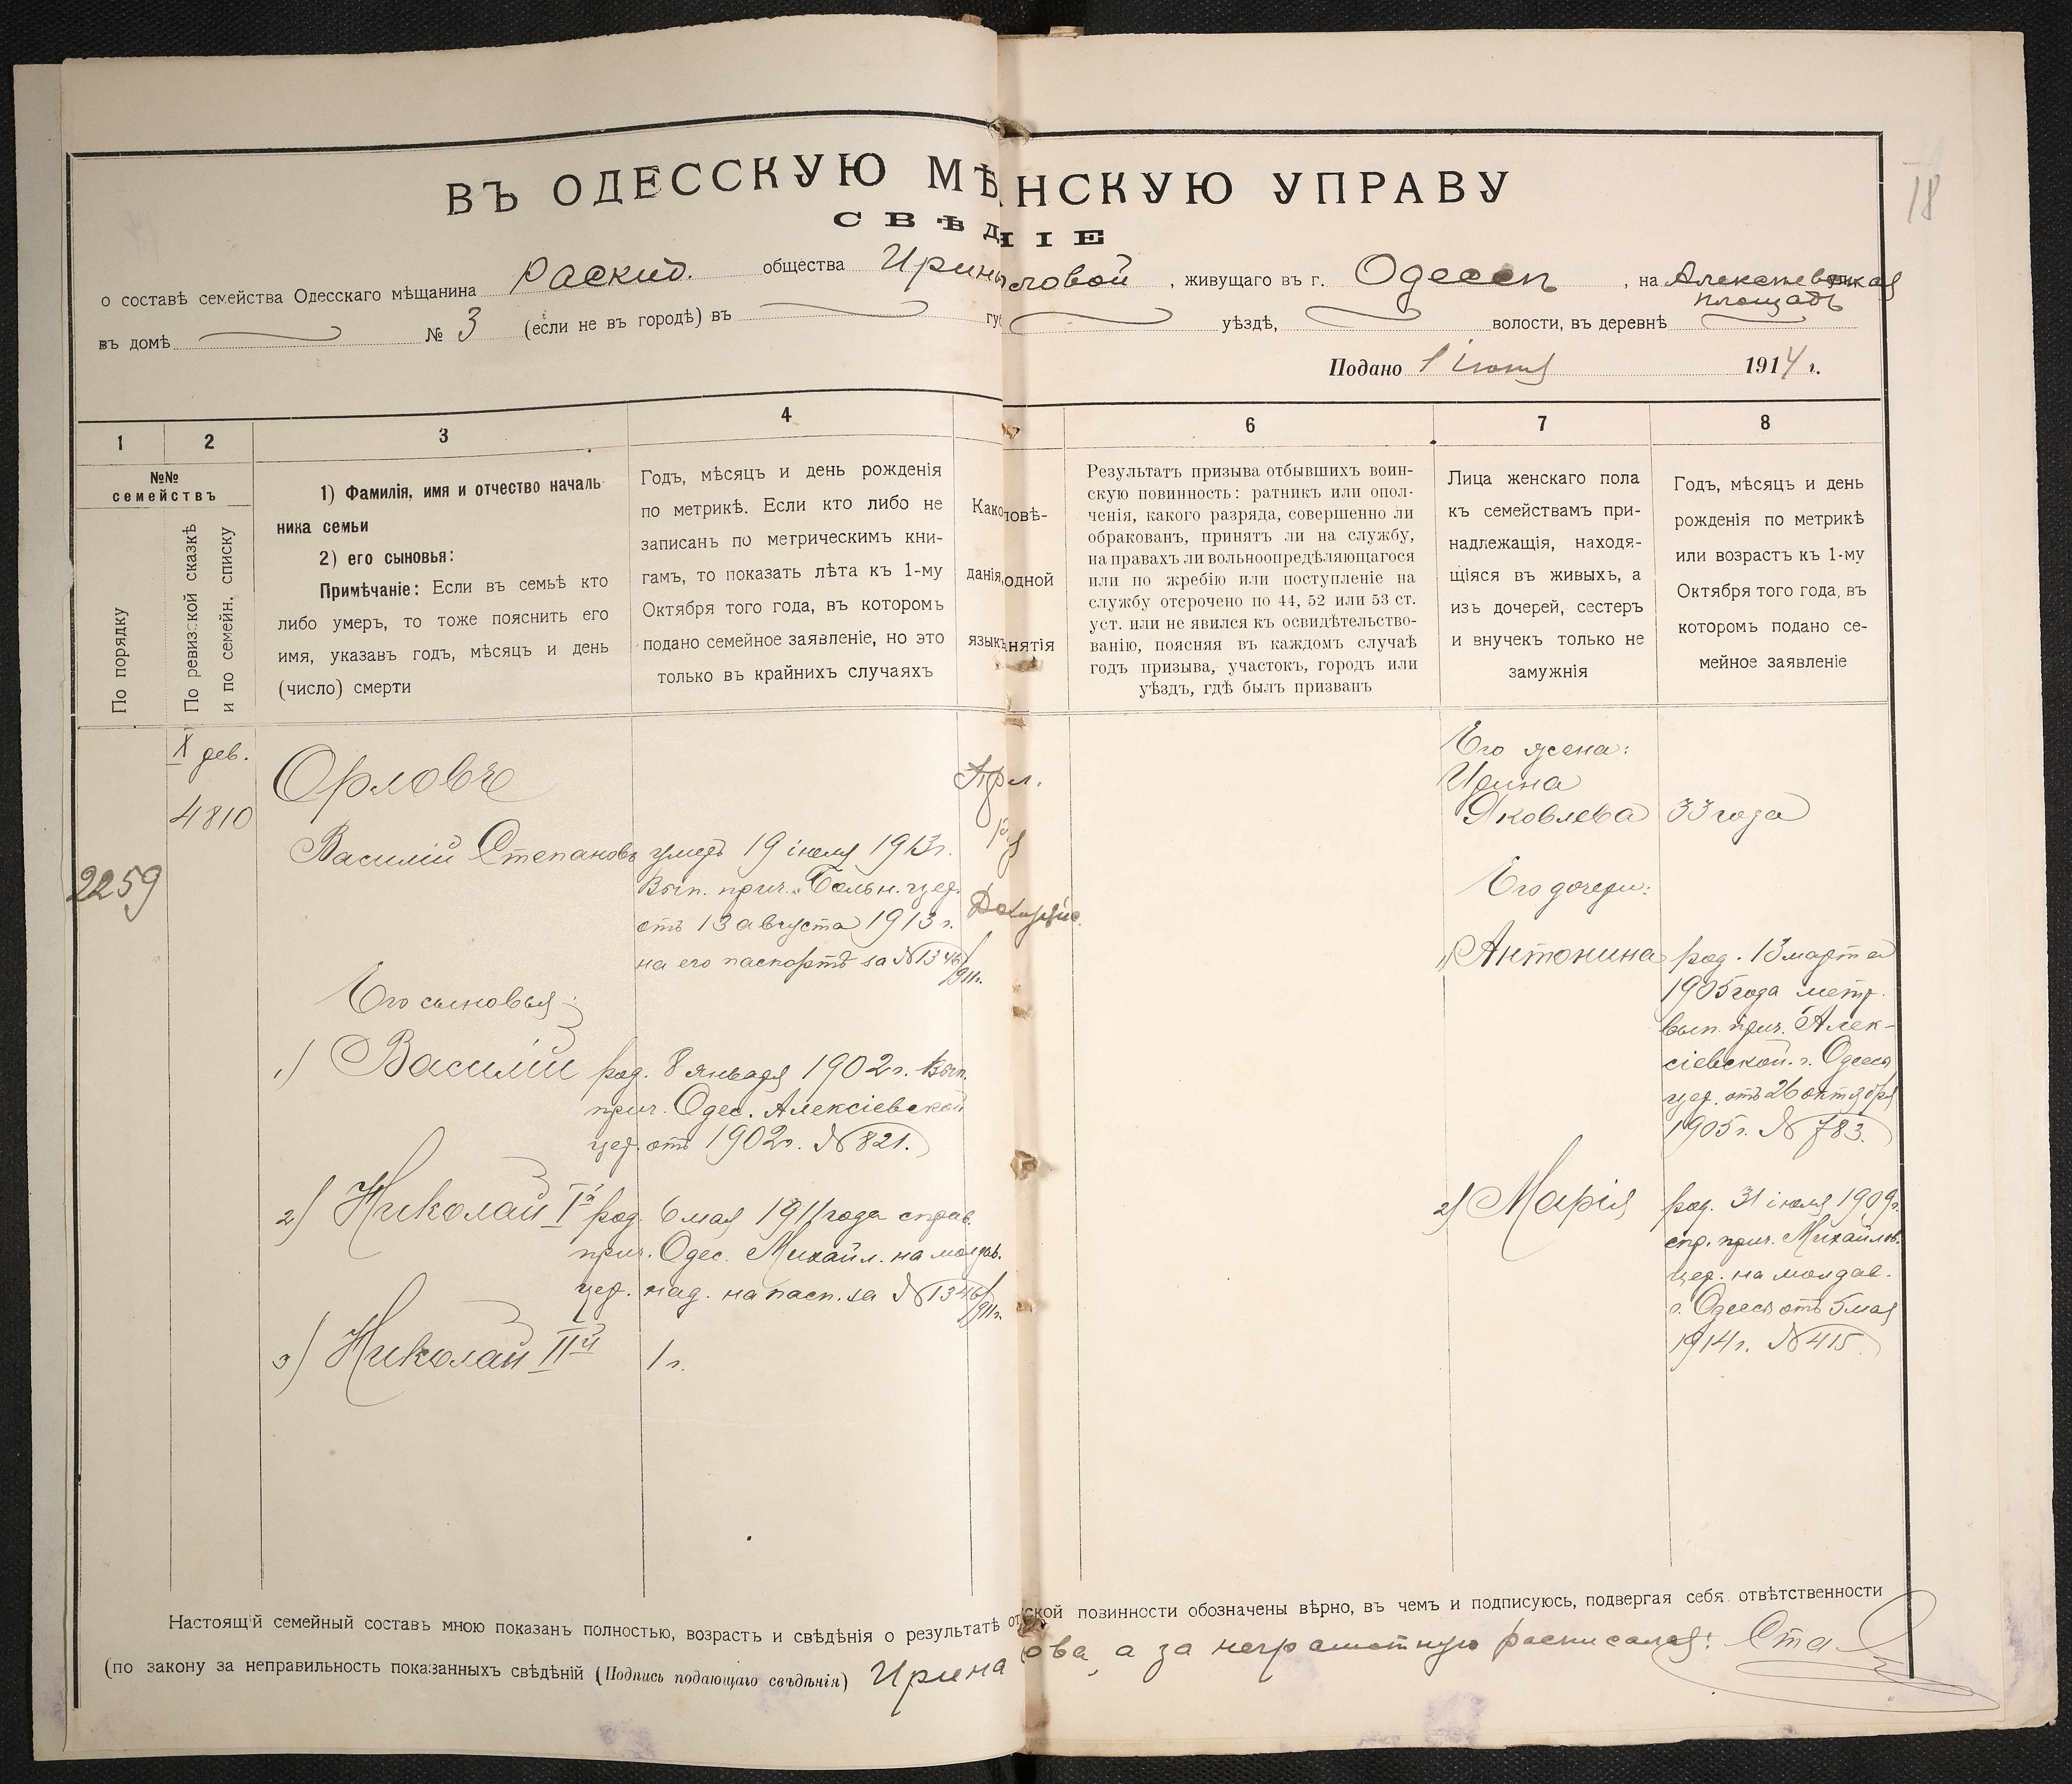 18
ВЪ ОДЕССКУЮ МѢ НСКУЮ УПРАВУ
СВѢД НІЕ
о составѣ семейства Одесскаго мѣщанина Раскид. общества Ирины рловой , живущаго въ г. Одессѣ , на Алексѣевская
площадь
въ домѣ № 3 (если не въ городѣ) въ губ уѣздѣ, волости, въ деревнѣ
Подано 1 іюня 1914 г.
1 2 3 4 6 7 8
№№ семействъ
По порядку
По ревизской сказкѣ и по семейн. списку
1) Фамилія, имя и отчество началь-
ника семьи
2) его сыновья:
Примѣчаніе: Если въ семьѣ кто
либо умеръ, то тоже пояснить его
имя, указавъ годъ, мѣсяцъ и день
(число) смерти
Годъ, мѣсяцъ и день рожденія
по метрикѣ. Если кто либо не
записанъ по метрическимъ кни-
гамъ, то показать лѣта къ 1-му
Октября того года, въ которомъ
подано семейное заявленіе, но это
только въ крайнихъ случаяхъ
Како повѣ-
данія, одной
языкъ нятія
Результатъ призыва отбывшихъ воин-
скую повинность: ратникъ или опол-
ченія, какого разряда, совершенно ли
обракованъ, принятъ ли на службу,
на правахъ ли вольноопредѣляющагося
или по жребію или поступленіе на
службу отсрочено по 44, 52 или 53 ст.
уст. или не явился къ освидѣтельство-
ванію, поясняя въ каждомъ случаѣ
годъ призыва, участокъ, городъ или
уѣздъ, гдѣ былъ призванъ
Лица женскаго пола
къ семействамъ при-
надлежащія, находя-
щіяся въ живыхъ, а
изъ дочерей, сестеръ
и внучекъ только не
замужнія
Годъ, мѣсяцъ и день
рожденія по метрикѣ
или возрастъ къ 1-му
Октября того года, въ
которомъ подано се-
мейное заявленіе
2259
X рев.
4810
Орловъ
Василій Степановъ умеръ 19 іюля 1913 г.
Вып. прич. Больн. цер.
отъ 13 августа 1913 г.
на его паспортѣ за № 1346/911 г.
Его сыновья:
1) Василій род. 8 января 1902 г. Вып.
прич. Одес. Алексіевской
цер. отъ 1902 г. № 821.
2) Николай Iй род. 6 мая 1911 года справ.
прич. Одес. Михайл. на молдав.
цер. над. на пасп. за № 1346/911 г.
3) Николай IIй 1 г.
Его жена:
Ирина
Яковлева 33 года
Его дочери:
1) Антонина род. 13 марта
1905 года метр.
вып. прич. Алек-
сіевской. г. Одессы
цер. отъ 26 октября
1905 г. № 783.
2) Марія род. 31 іюля 1909 г.
спр. прич. Михайлов.
цер. на молдав.
г. Одессы отъ 5 мая
1914 г. № 415.
Настоящій семейный составъ мною показанъ полностью, возрастъ и свѣдѣнія о результатѣ от ской повинности обозначены вѣрно, въ чемъ и подписуюсь, подвергая себя отвѣтственности
(по закону за неправильность показанныхъ свѣдѣній (Подпись подающаго свѣдѣнія) Ирина ова, а за неграмотную расписался: